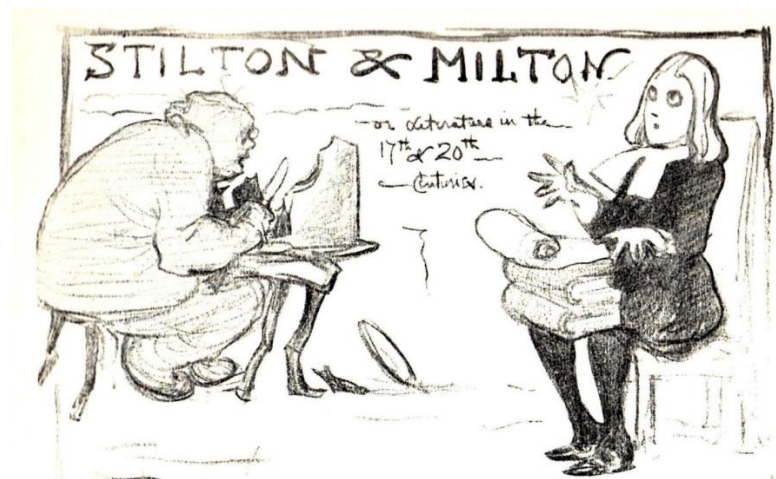 STILTON & MILTON
— or Literature in the —
17th & 20th —
— Centuries.